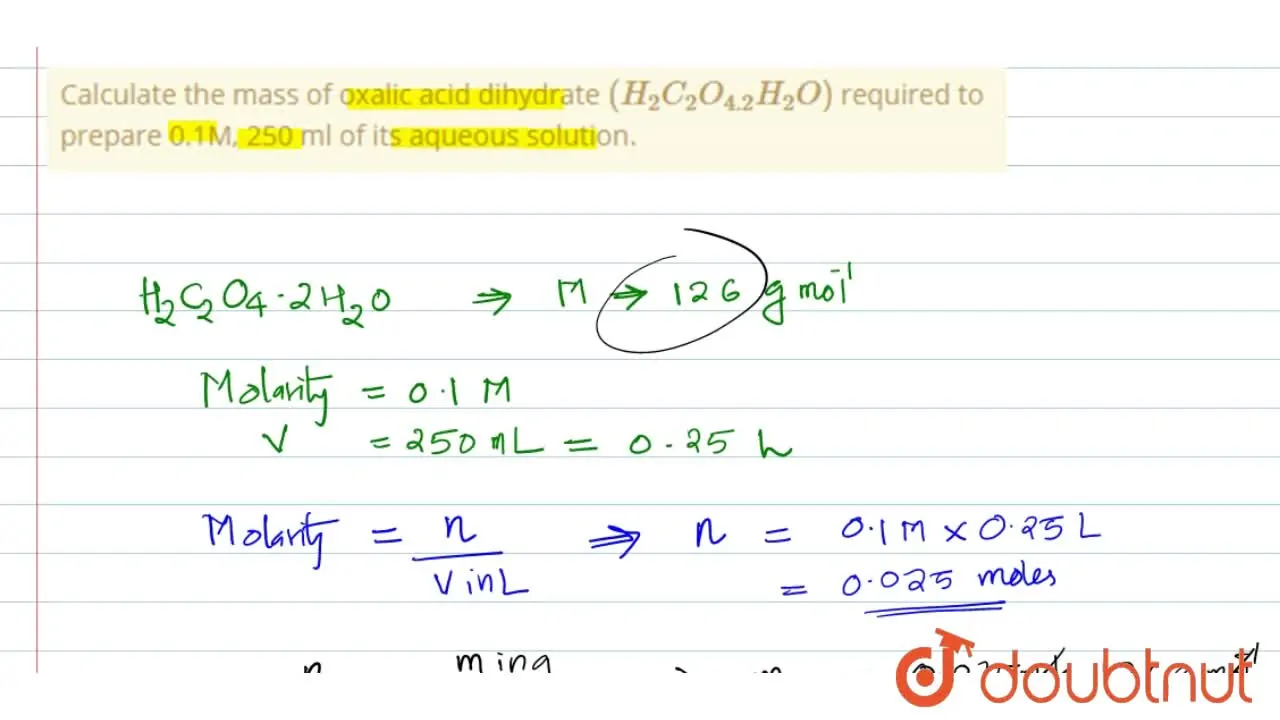 Calculate the mass of oxalic acid dihydrate (H₂C₂O₄.₂H₂O) required to
prepare 0.1M, 250 ml of its aqueous solution.
H₂C₂O₄·2H₂O ⇒ M → 126 g mol⁻¹
Molarity = 0.1 M
V = 250 mL = 0.25 L
Molarity = n / V in L ⇒ n = 0.1 M × 0.25 L
= 0.025 moles
n m in g
doubtnut